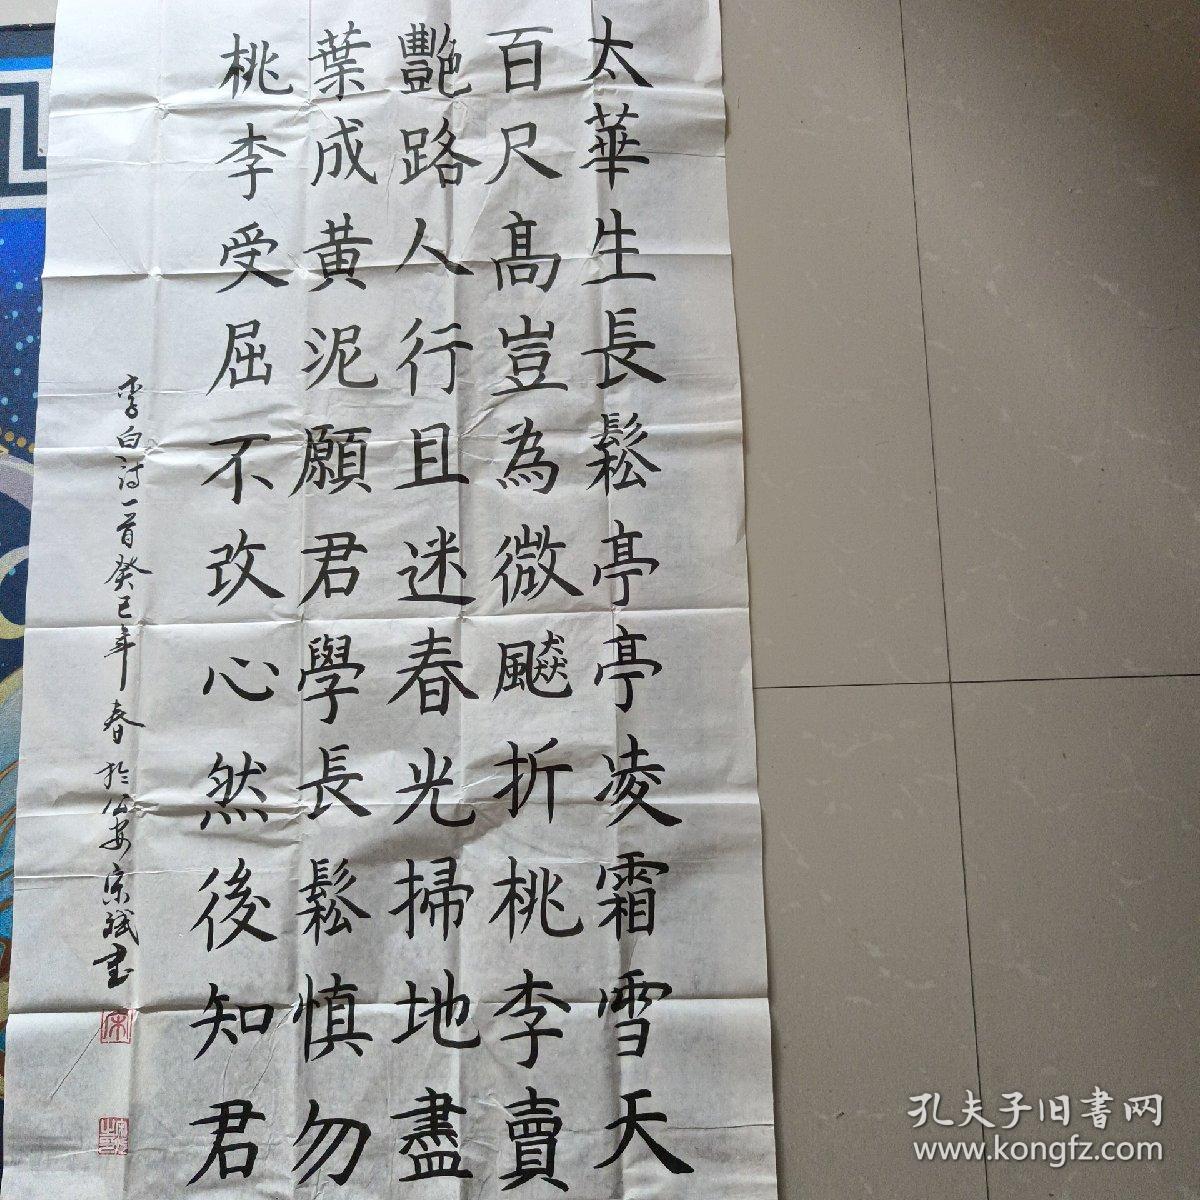 太華生長鬆亭亭凌霜雪天
百尺高豈為微飈折桃李賣
艷路人行且迷春光掃地盡
葉成黃泥願君學長鬆慎勿
桃李受屈不改心然後知君
李白詩一首癸巳年春於公安宗斌書
孔夫子旧書网
www.kongfz.com